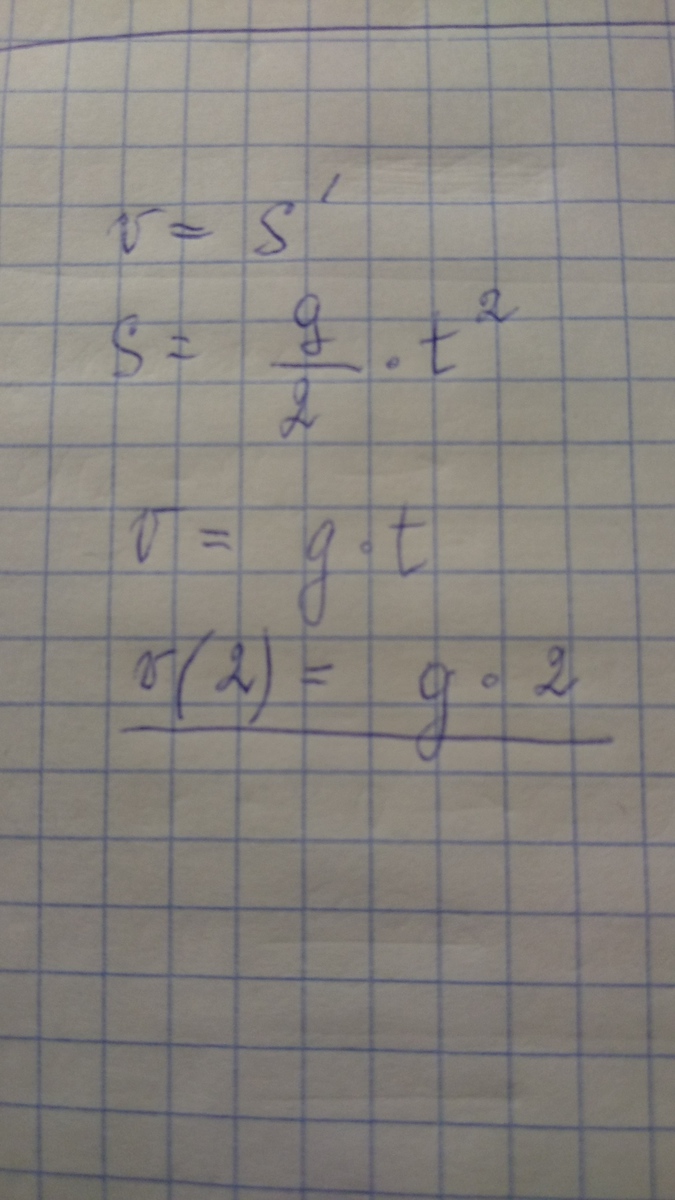 v = S'
S = g/2 · t²
v = g · t
v(2) = g · 2